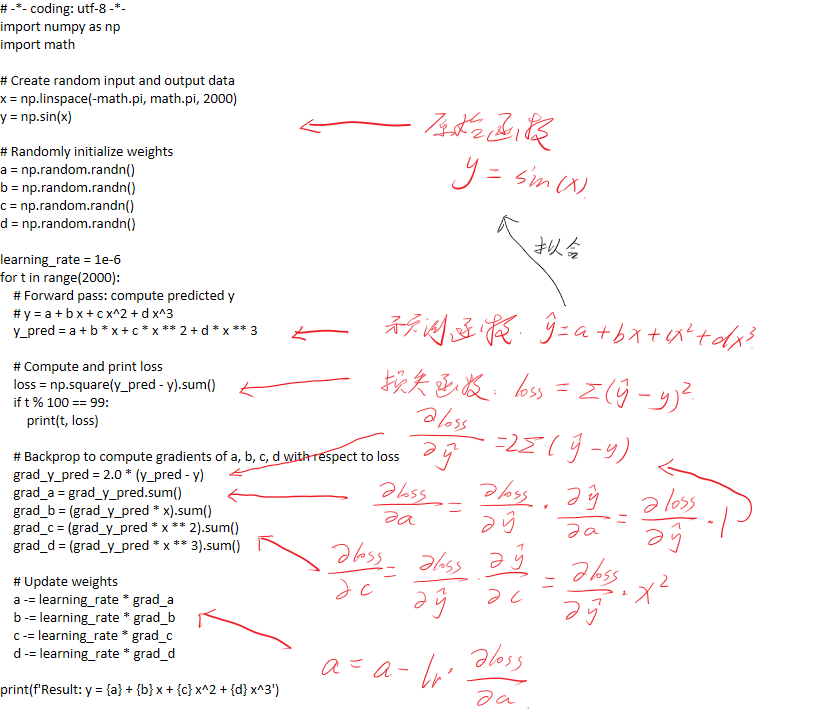 # -*- coding: utf-8 -*-
import numpy as np
import math
# Create random input and output data
x = np.linspace(-math.pi, math.pi, 2000)
y = np.sin(x)
原始函数
y = sin(x)
# Randomly initialize weights
a = np.random.randn()
b = np.random.randn()
c = np.random.randn()
d = np.random.randn()
拟合
learning_rate = 1e-6
for t in range(2000):
# Forward pass: compute predicted y
# y = a + b x + c x^2 + d x^3
y_pred = a + b * x + c * x ** 2 + d * x ** 3
预测函数. ŷ=a+bx+cx²+dx³
# Compute and print loss
loss = np.square(y_pred - y).sum()
损失函数: loss = Σ(ŷ-y)²
if t % 100 == 99:
print(t, loss)
∂loss/∂ŷ =2Σ(ŷ-y)
# Backprop to compute gradients of a, b, c, d with respect to loss
grad_y_pred = 2.0 * (y_pred - y)
grad_a = grad_y_pred.sum()
∂loss/∂a = ∂loss/∂ŷ · ∂ŷ/∂a = ∂loss/∂ŷ · 1
grad_b = (grad_y_pred * x).sum()
grad_c = (grad_y_pred * x ** 2).sum()
grad_d = (grad_y_pred * x ** 3).sum()
∂loss/∂c = ∂loss/∂ŷ · ∂ŷ/∂c = ∂loss/∂ŷ · x²
# Update weights
a -= learning_rate * grad_a
b -= learning_rate * grad_b
c -= learning_rate * grad_c
d -= learning_rate * grad_d
a = a - lr · ∂loss/∂a
print(f'Result: y = {a} + {b} x + {c} x^2 + {d} x^3')